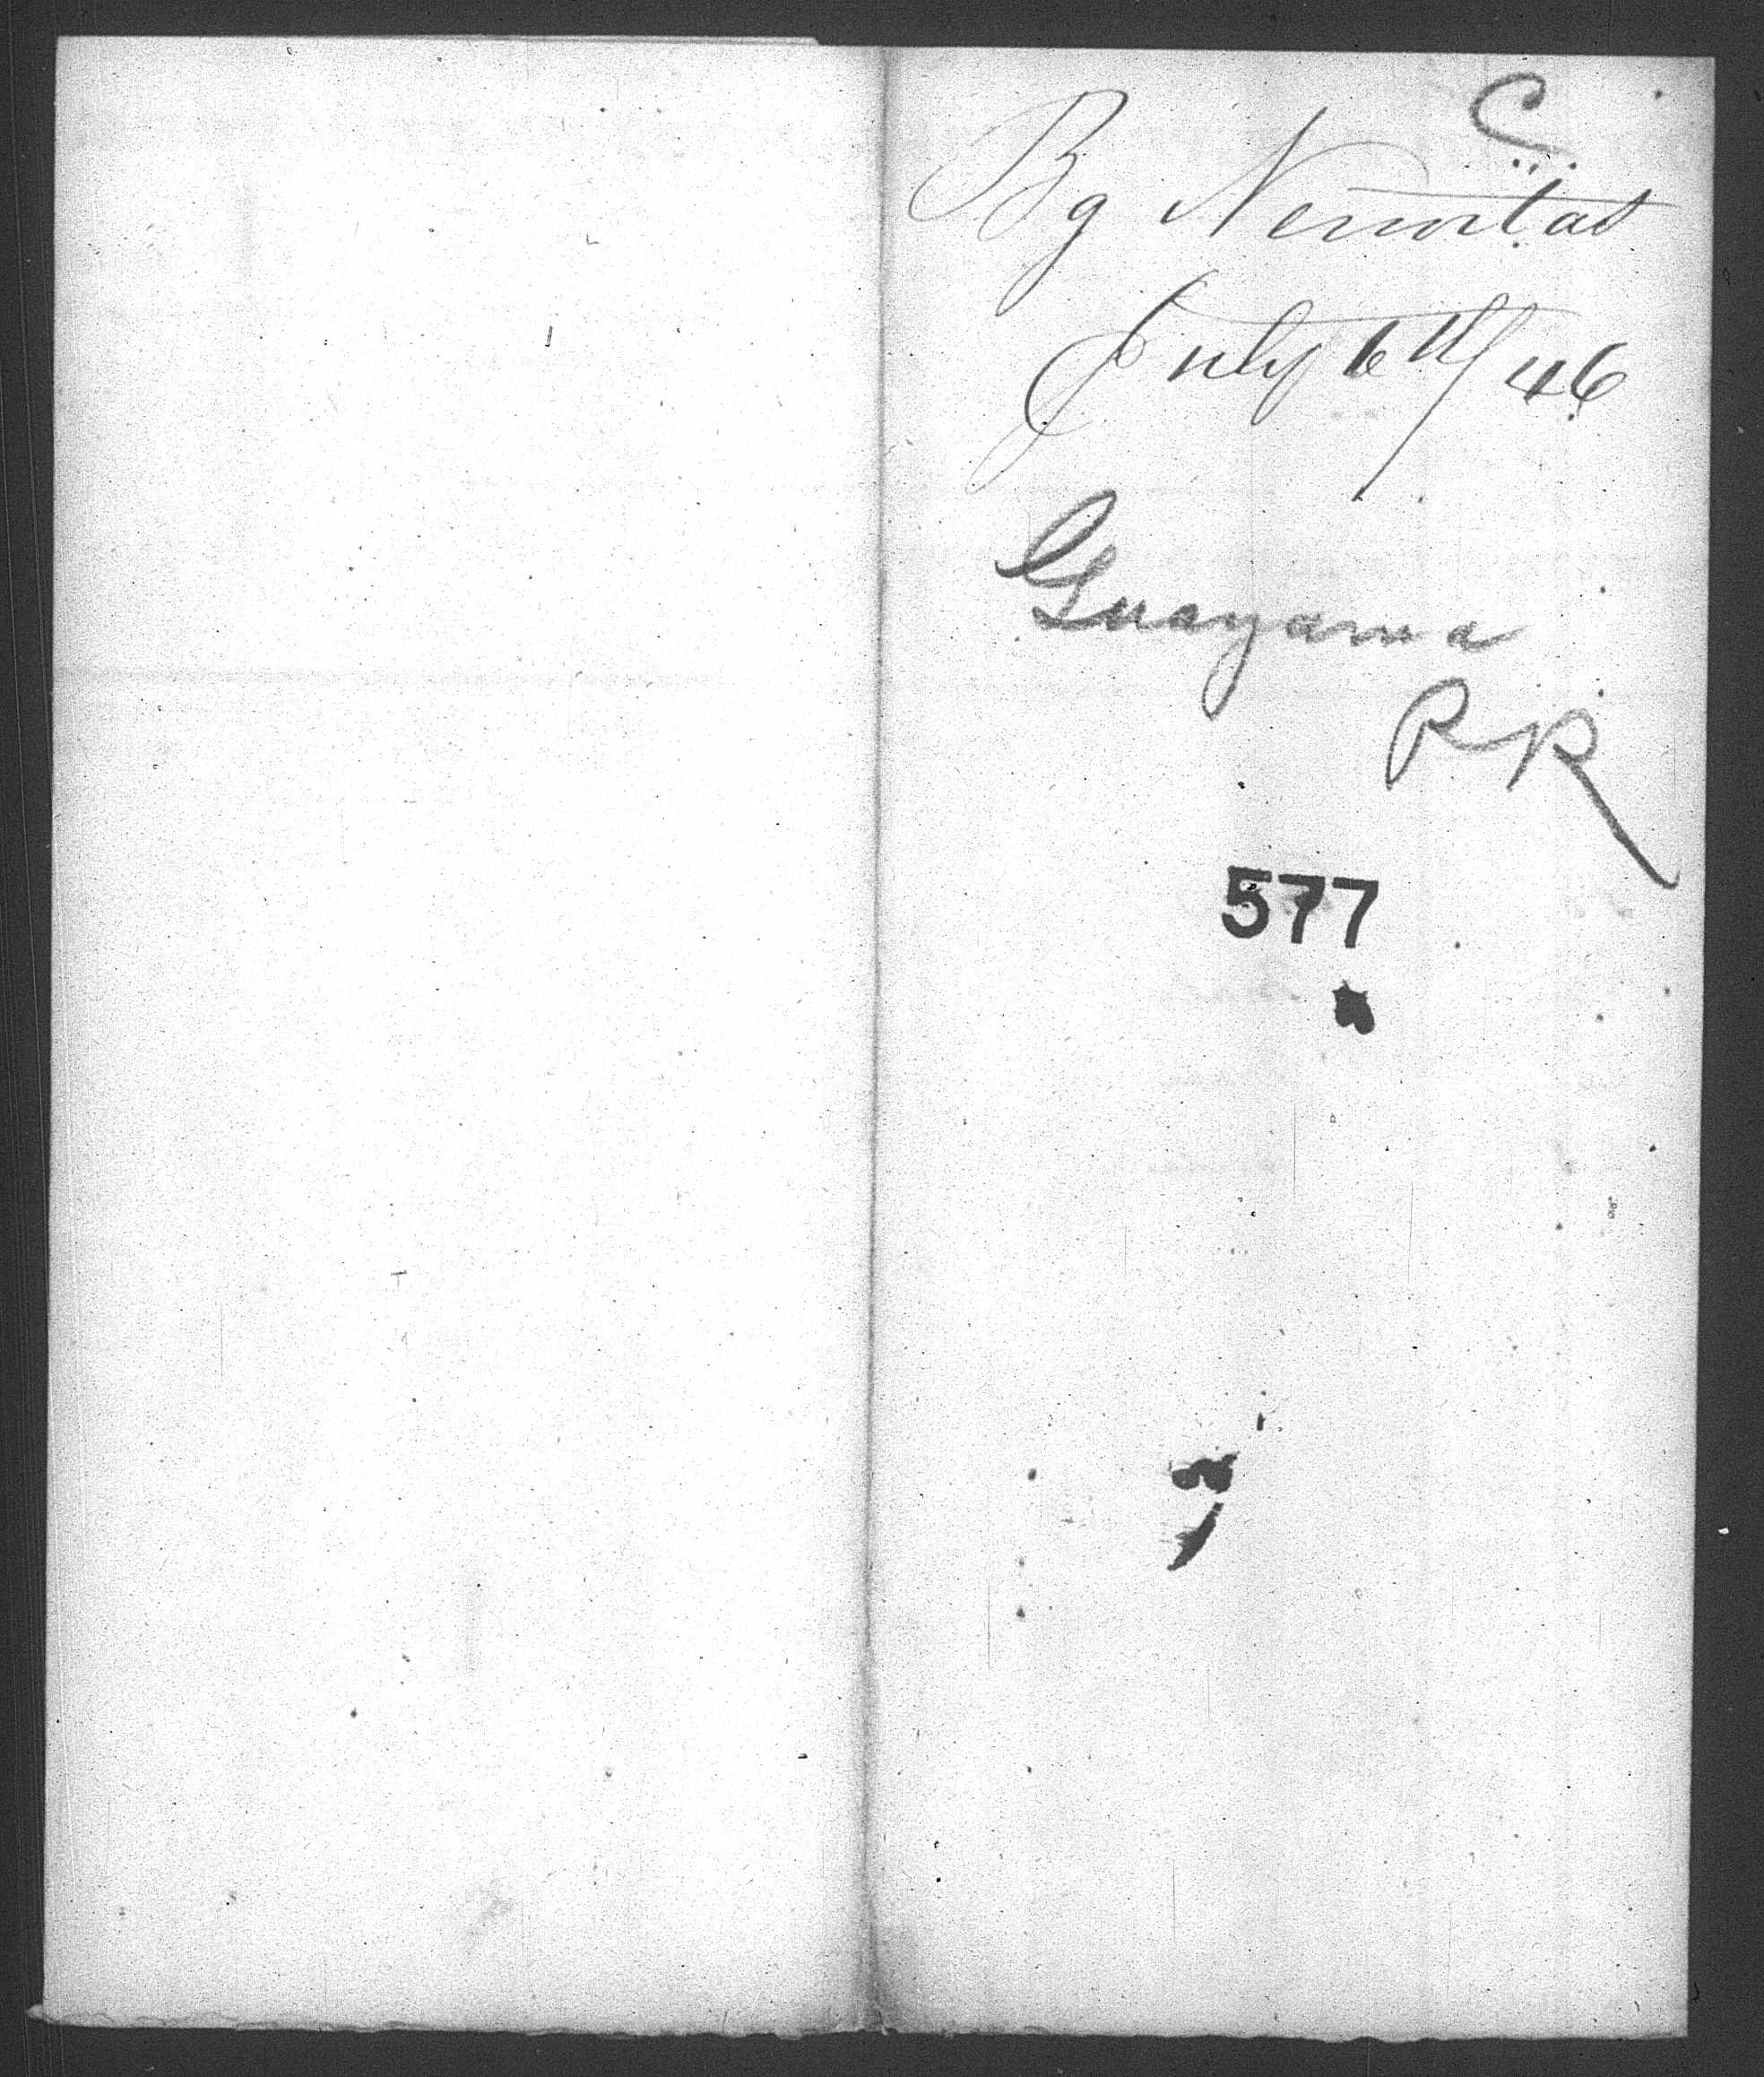 C
Bg Neuvitas
July 6th/46
Guayama
PR
577